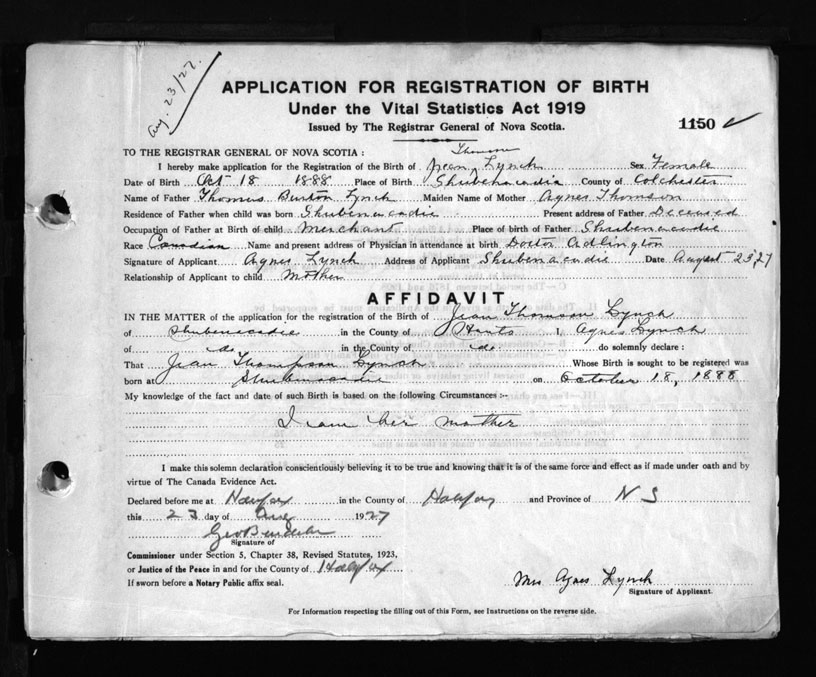 Aug. 23/27.
APPLICATION FOR REGISTRATION OF BIRTH
Under the Vital Statistics Act 1919
Issued by The Registrar General of Nova Scotia.
1150
TO THE REGISTRAR GENERAL OF NOVA SCOTIA:
Thomson
I hereby make application for the Registration of the Birth of Jean Lynch Sex Female
Date of Birth Oct 18 1888 Place of Birth Shubenacadie County of Colchester
Name of Father Thomas Burton Lynch Maiden Name of Mother Agnes Thomson
Residence of Father when child was born Shubenacadie Present address of Father Deceased
Occupation of Father at Birth of child Merchant Place of birth of Father Shubenacadie
Race Canadian Name and present address of Physician in attendance at birth Doctor Adlington
Signature of Applicant Agnes Lynch Address of Applicant Shubenacadie Date August 23, 27
Relationship of Applicant to child Mother
AFFIDAVIT
IN THE MATTER of the application for the registration of the Birth of Jean Thomson Lynch
of Shubenacadie in the County of Hants I, Agnes Lynch
of do in the County of do do solemnly declare:
That Jean Thompson Lynch Whose Birth is sought to be registered was
born at Shubenacadie on October 18, 1888
My knowledge of the fact and date of such Birth is based on the following Circumstances:-
I am her mother
I make this solemn declaration conscientiously believing it to be true and knowing that it is of the same force and effect as if made under oath and by
virtue of The Canada Evidence Act.
Declared before me at Halifax in the County of Halifax and Province of N S
this 23 day of Aug 1927
Geo
Signature of
Commissioner under Section 5, Chapter 38, Revised Statutes, 1923,
or Justice of the Peace in and for the County of Halifax
If sworn before a Notary Public affix seal.
Mrs Agnes Lynch
Signature of Applicant.
For Information respecting the filling out of this Form, see Instructions on the reverse side.